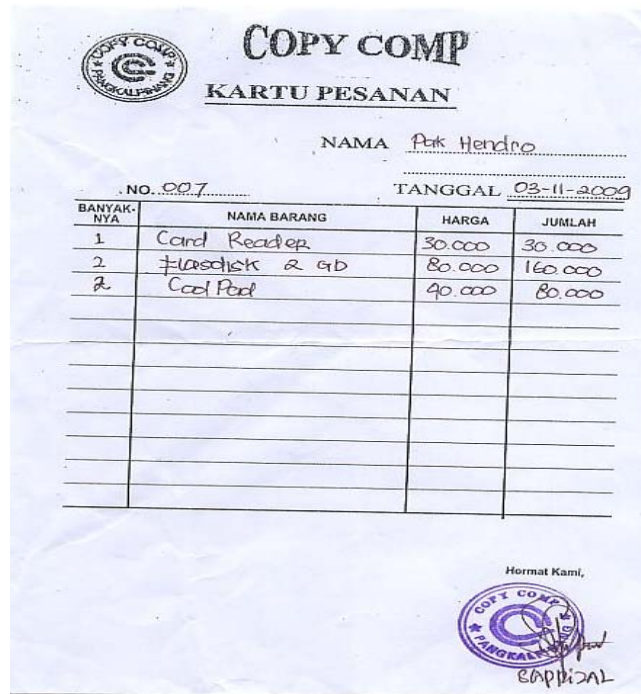 COPY COMP
PANGKALPINANG
COPY COMP
KARTU PESANAN
NAMA Pak Hendro
NO. 007 TANGGAL 03-11-2009
BANYAK-NYA NAMA BARANG HARGA JUMLAH
1 Card Reader 30.000 30.000
2 Flasdisk 2 GB 80.000 160.000
2 Cool Pad 40.000 80.000
Hormat Kami,
COPY COMP
PANGKALPINANG